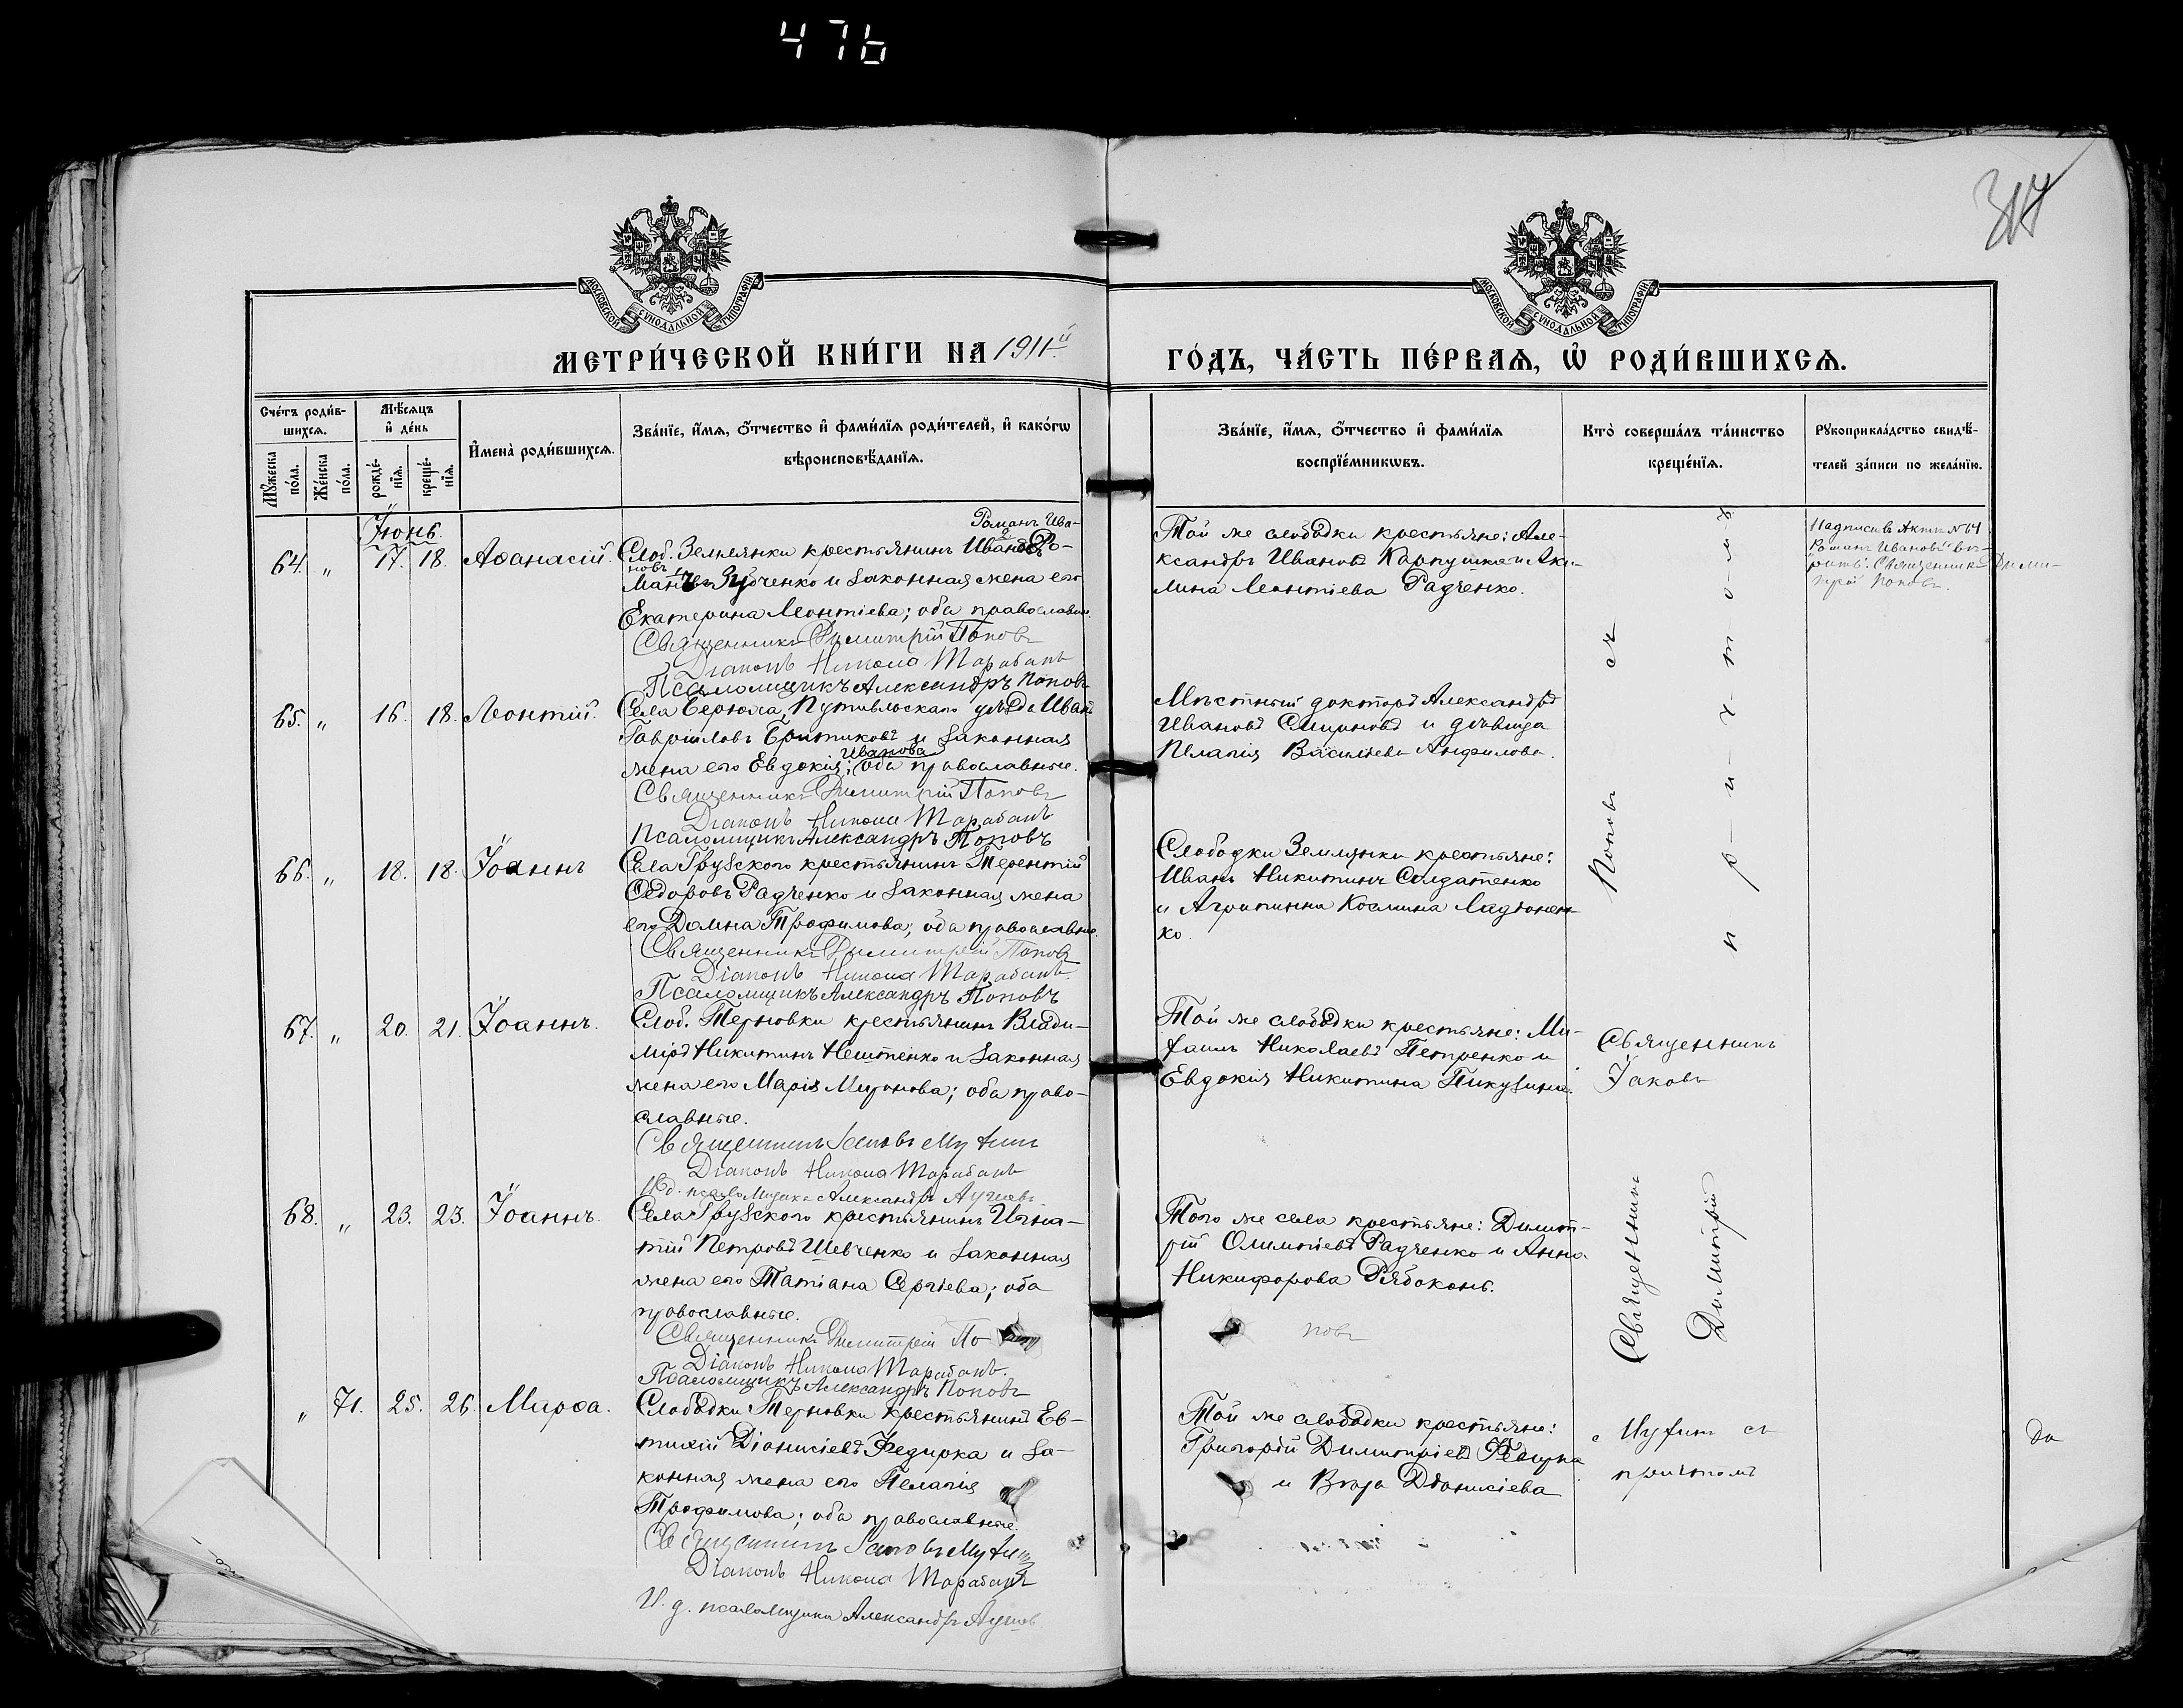 476
317
МОСКОВСКОЙ СѴНОДАЛЬНОЙ ТИПОГРАФІИ
МОСКОВСКОЙ СѴНОДАЛЬНОЙ ТИПОГРАФІИ
МЕТРИ́ЧЕСКОЙ КНИ́ГИ НА 1911й
ГО́ДЪ, ЧА́СТЬ ПЕ́РВАѦ, Ѡ҆ РОДИ́ВШИХСѦ.
Сче́тъ роди́в-
шихсѧ.
Мꙋ́жеска по́ла.
Же́нска по́ла.
Мѣ́сѧцъ
и҆ де́нь
рожде́-
нїѧ.
креще́-
нїѧ.
И҆мена̀ роди́вшихсѧ.
Зва́нїе, и҆́мѧ, ѻ҆́тчество и҆ фами́лїѧ роди́телей, и҆ како́гѡ
вѣроисповѣ́данїѧ.
Зва́нїе, и҆́мѧ, ѻ҆́тчество и҆ фами́лїѧ
воспрїе́мникѡвъ.
Кто̀ соверша́лъ та́инство
креще́нїѧ.
Рꙋкоприкла́дство свидѣ́-
телей за́писи по жела́нїю.
Іюнь.
64. „ 17. 18. Аѳанасій.
Романъ Ива-
Слоб. Землянки крестьянинъ Ивановъ Ро-
новъ
манъ Зубченко и законная жена его
Екатерина Леонтіева; оба православн.
Священникъ Димитрій Поповъ
Діаконъ Никола Тарабанъ
Псаломщикъ Александръ Поповъ
Той же слободки крестьяне: Але-
ксандръ Ивановъ Карпушка и Аки-
лина Леонтіева Радченко.
Надпись въ Актѣ №64
Романъ Ивановъ вѣ-
рить. Священникъ Дими-
трій Поповъ.
65. „ 16. 18. Леонтій.
Села Берюха, Путивльскаго уѣзда Иванъ
Гавріиловъ Бритиковъ и законная
Иванова
жена его Евдокія; оба православные.
Священникъ Димитрій Поповъ
Діаконъ Никола Тарабанъ
Псаломщикъ Александръ Поповъ
Мѣстный докторъ Александръ
Ивановъ Смирновъ и дѣвица
Пелагія Васильева Анфилова.
66. „ 18. 18. Іоаннъ
Села Грузского крестьянинъ Терентій
Ѳедоровъ Радченко и законная жена
его Домна Трофимова; оба православные.
Священникъ Димитрій Поповъ
Діаконъ Никола Тарабанъ.
Псаломщикъ Александръ Поповъ
Слободки Землянки крестьяне:
Иванъ Никитинъ Солдатенко
и Агрипинна Космина Ладонен-
ко.
67. „ 20. 21. Іоаннъ.
Слоб. Терновки крестьянинъ Влади-
міръ Никитинъ Нештенко и законная
жена его Марія Миронова; оба право-
славные.
Священникъ Іаковъ Мухинъ
Діаконъ Никола Тарабанъ
И.д. псаломщика Александръ
Той же слободки крестьяне: Ми-
хаилъ Николаевъ Петренко и
Евдокія Никитина Пикузина.
Священникъ
Іаковъ
68. „ 23. 23. Іоаннъ.
Села Грузского крестьянинъ Игна-
тій Петровъ Шевченко и законная
жена его Татіана Сергіева; оба
православные.
Священникъ Димитрій По-
повъ
Діаконъ Никола Тарабанъ.
Псаломщикъ Александръ Поповъ
Того же села крестьяне: Димит-
рій Олимпіевъ Радченко и Анна
Никифорова Рябоконь.
Священникъ Поповъ съ
Димитрій п-р-и-ч-т-о-м-ъ
„ 71. 25. 26. Марѳа.
Слободки Терновки крестьянинъ Ев-
тихій Діонисіевъ Федирка и за-
конная жена его Пелагія
Трофимова; оба православные.
Священникъ Іаковъ Мухинъ
Діаконъ Никола Тарабанъ
И. д. псаломщика Александръ
Той же слободки крестьяне:
Григорій Димитріевъ Федирка
и Вѣра Діонисіева
Мухинъ съ
причтомъ
да